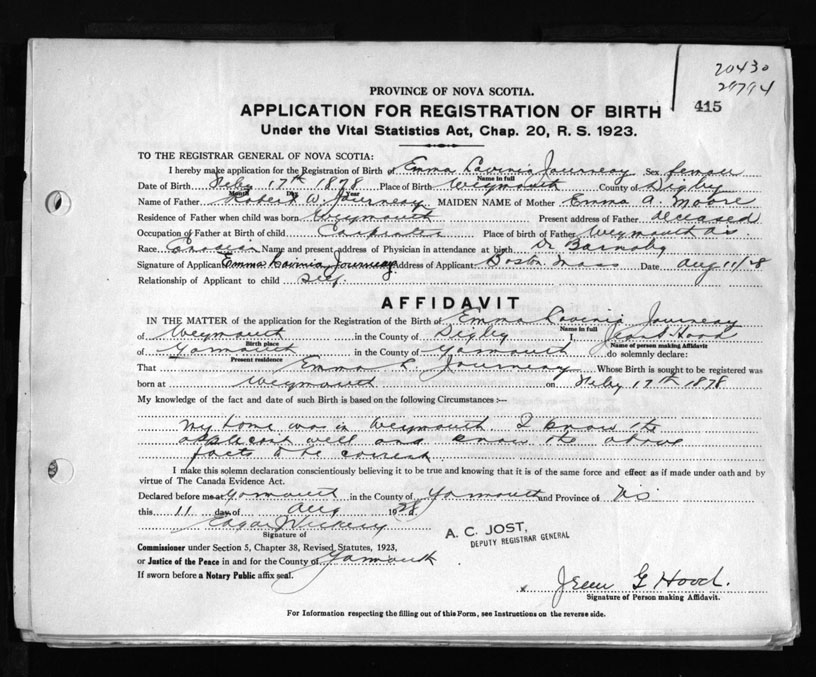 20430
29794
415
PROVINCE OF NOVA SCOTIA.
APPLICATION FOR REGISTRATION OF BIRTH
Under the Vital Statistics Act, Chap. 20, R. S. 1923.
TO THE REGISTRAR GENERAL OF NOVA SCOTIA:
I hereby make application for the Registration of Birth of Emma Lavinia Journeay Sex female
Name in full
Date of Birth Feby 17th 1878 Place of Birth Weymouth County of Digby
Month Day Year
Name of Father Robert W. Journeay MAIDEN NAME of Mother Emma A. Moore
Residence of Father when child was born Weymouth Present address of Father deceased
Occupation of Father at Birth of child Carpenter Place of birth of Father Weymouth NS
Race Name and present address of Physician in attendance at birth Dr Barnaby
Signature of Applicant Emma Lavinia Journeay Address of Applicant Boston Mass Date Aug 11/28
Relationship of Applicant to child self
AFFIDAVIT
IN THE MATTER of the application for the Registration of the Birth of Emma Lavinia Journeay
Name in full
of Weymouth in the County of Digby I Hood
Birth place Name of person making Affidavit
of Yarmouth in the County of Yarmouth do solemnly declare:
Present residence
That Emma L. Journeay Whose Birth is sought to be registered was
born at Weymouth on Feby 17th 1878
My knowledge of the fact and date of such Birth is based on the following Circumstances :—
My home was in Weymouth. I know the
applicant well and know the above
facts to be correct.
I make this solemn declaration conscientiously believing it to be true and knowing that it is of the same force and effect as if made under oath and by
virtue of The Canada Evidence Act.
Declared before me at Yarmouth in the County of Yarmouth and Province of NS
this 11 day of Aug 1928
Edgar
Signature of
A. C. JOST,
DEPUTY REGISTRAR GENERAL
Commissioner under Section 5, Chapter 38, Revised Statutes, 1923,
or Justice of the Peace in and for the County of Yarmouth
If sworn before a Notary Public affix seal.
x G Hood.
Signature of Person making Affidavit.
For Information respecting the filling out of this Form, see Instructions on the reverse side.